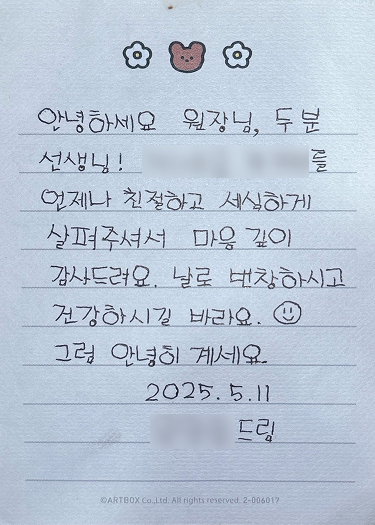 안녕하세요 원장님, 두 분
선생님! 를
언제나 친절하고 세심하게
살펴주셔서 마음 깊이
감사드려요. 날로 번창하시고
건강하시길 바라요. ☺
그럼 안녕히 계세요.
2025. 5. 11
드림
©ARTBOX Co.,Ltd. All rights reserved. 2-006017